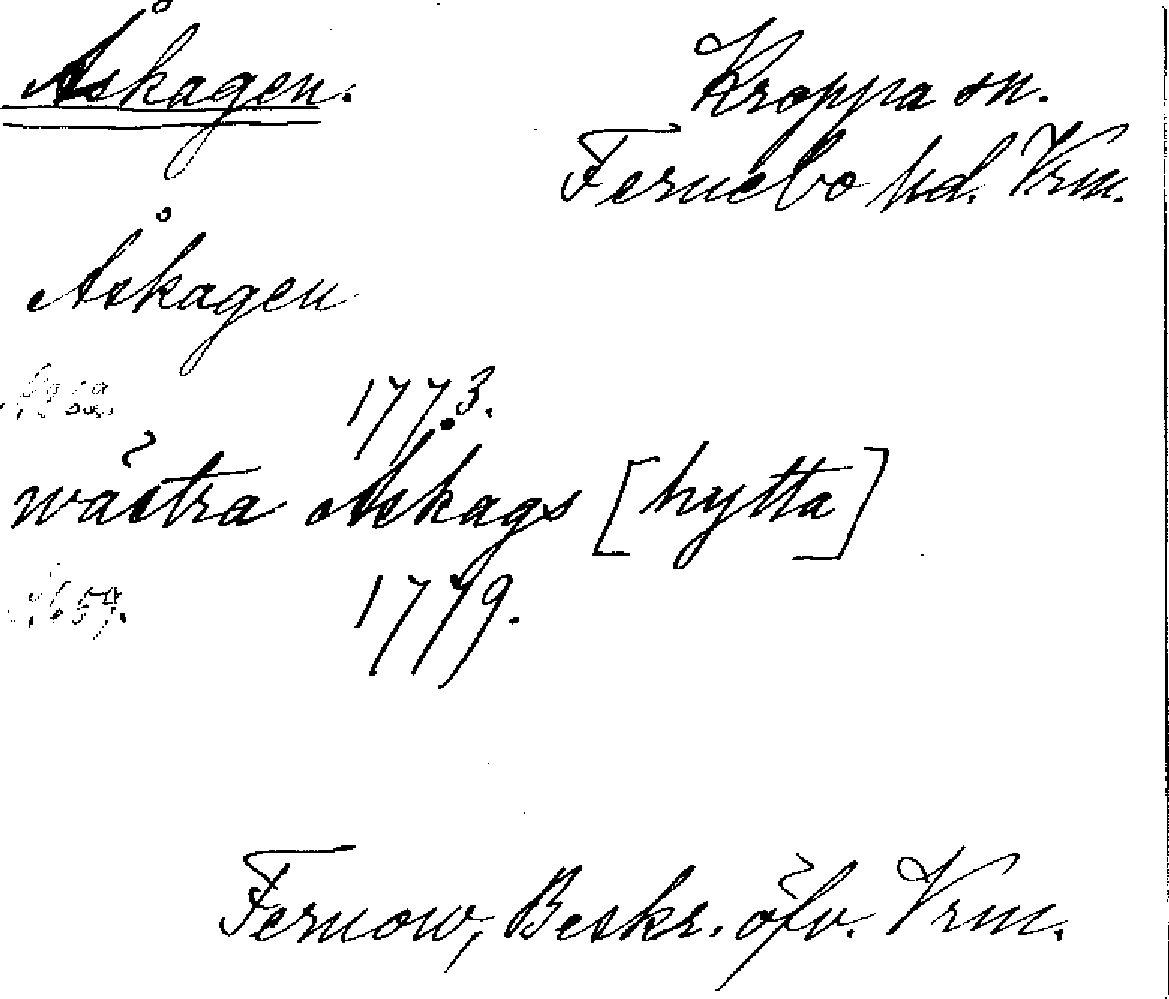 Åskagen.
Kroppa sn.
Fernebo hd. Vrm.
Åskagen
1773.
wästra Åskags [hytta]
1779.
Fernow, Beskr. öfv. Vrm.